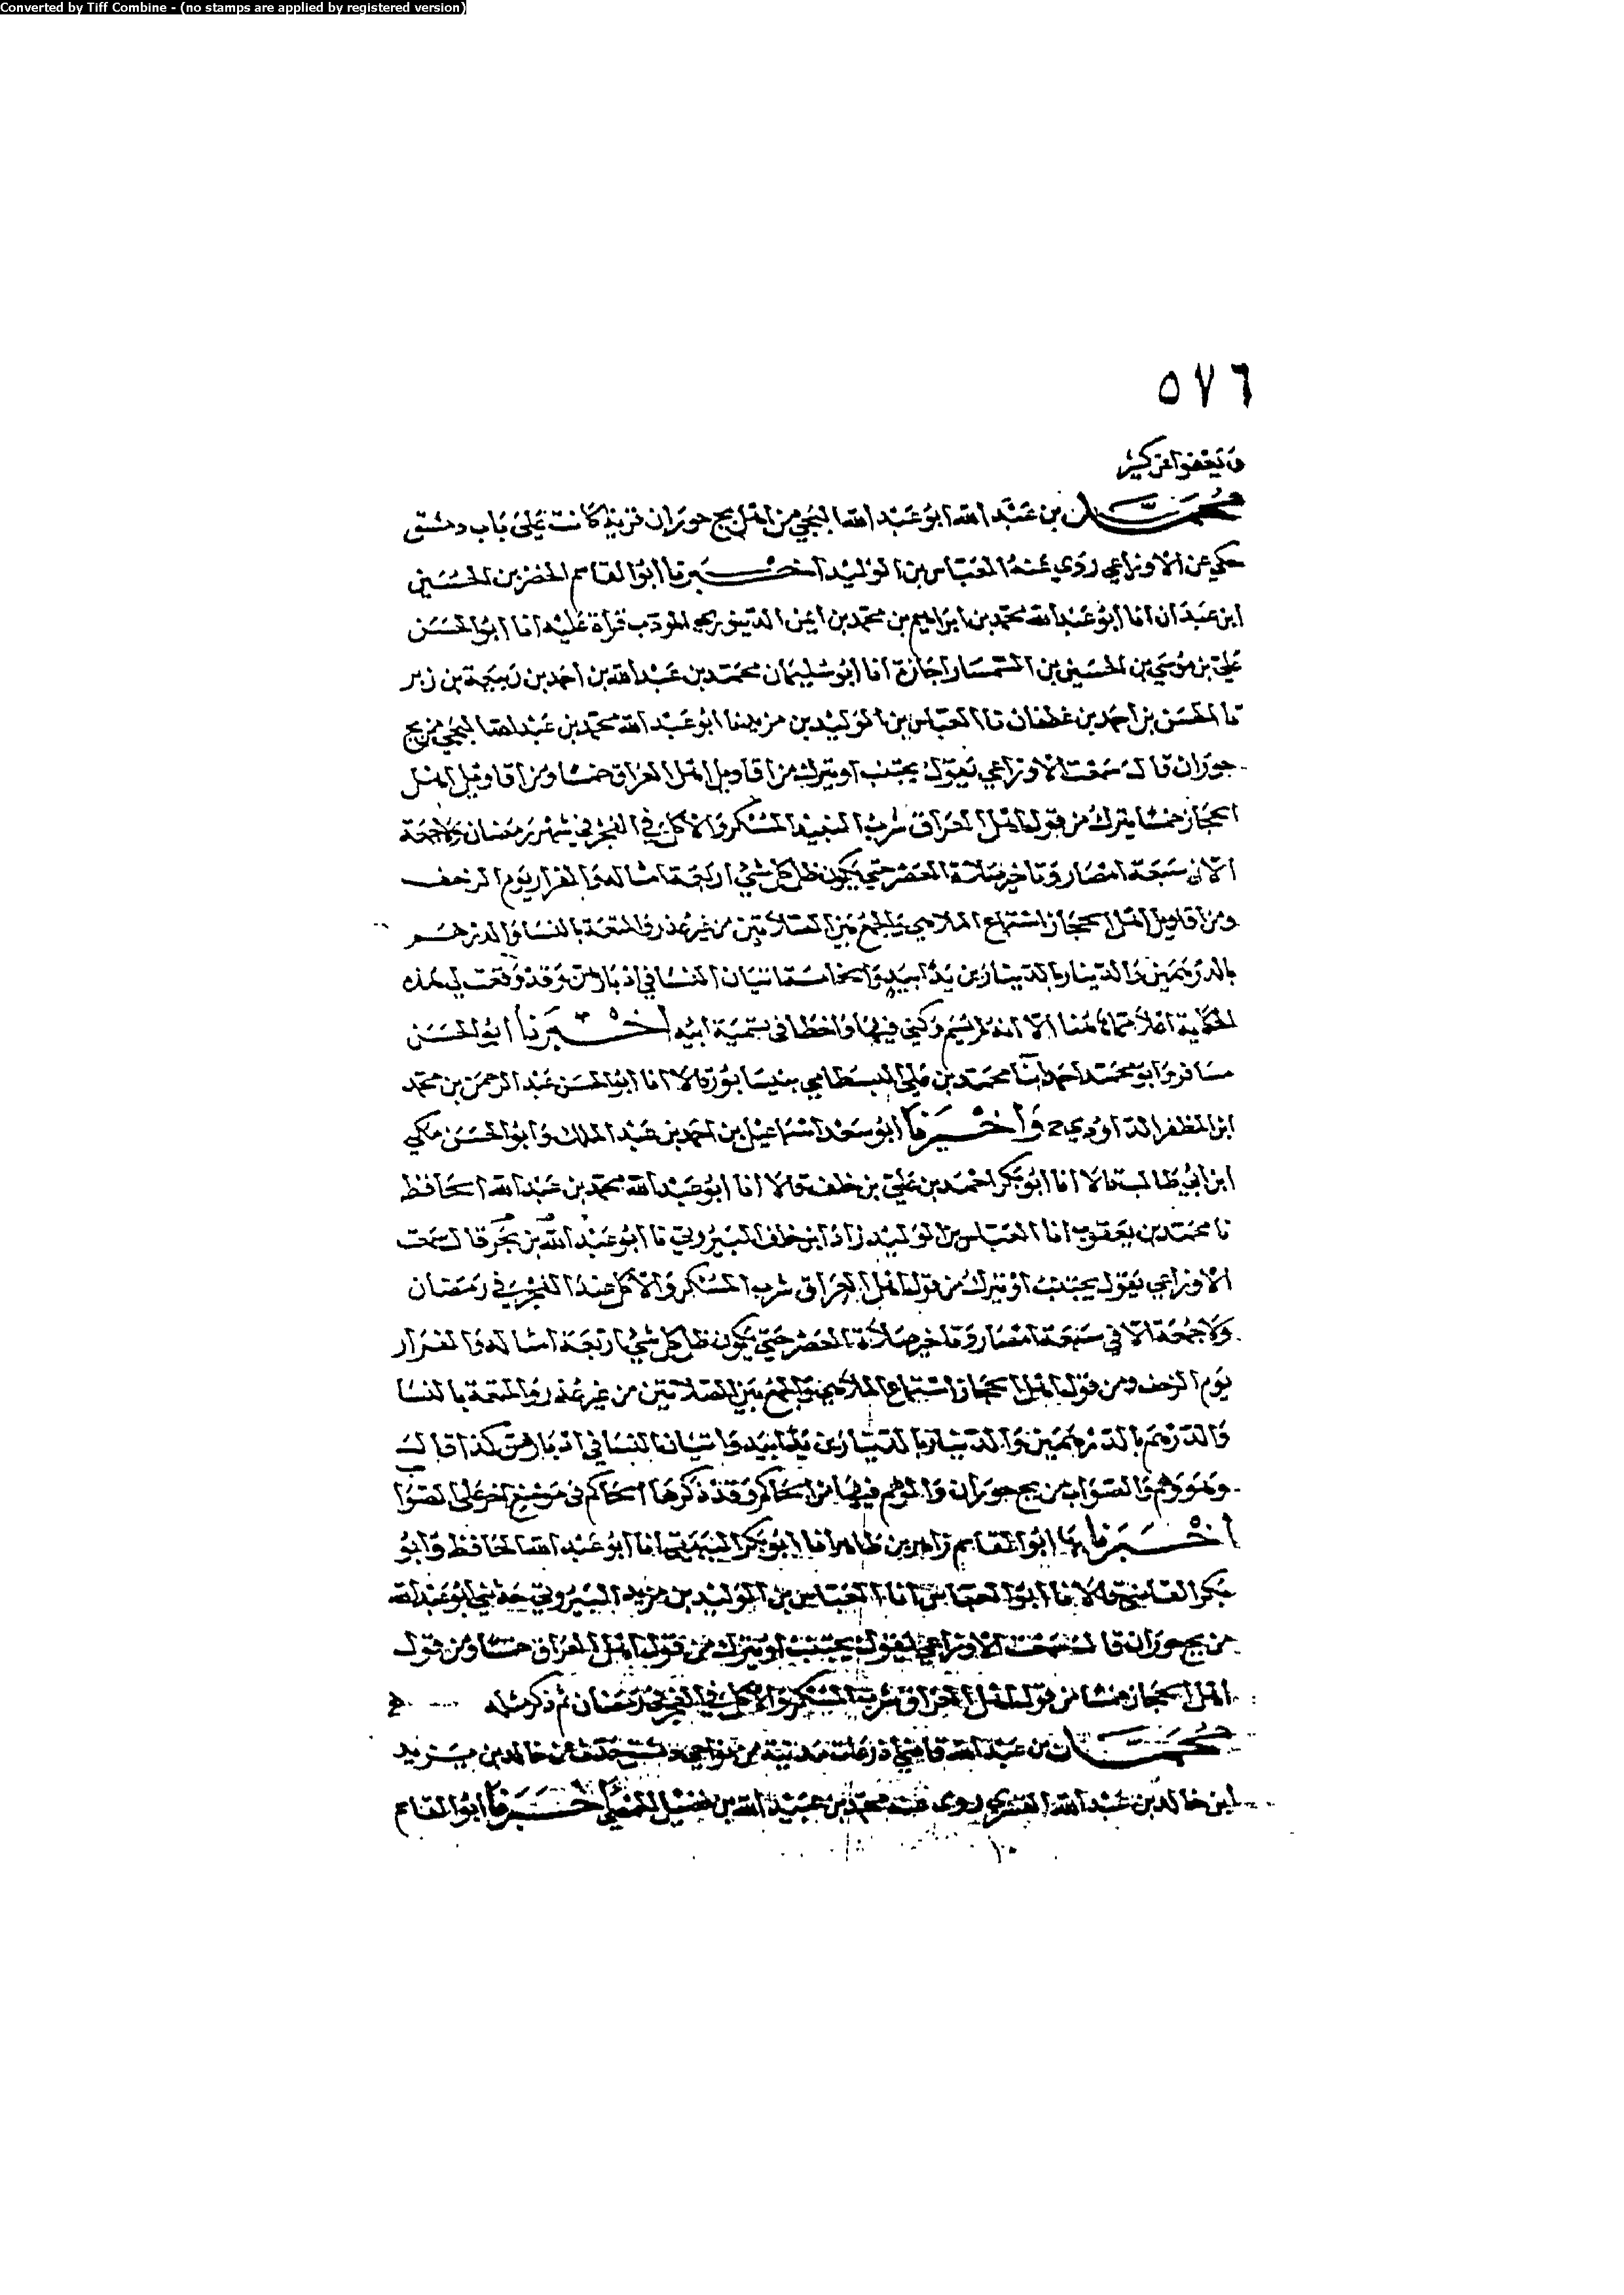 Converted by Tiff Combine - (no stamps are applied by registered version)
٥٧٦
ويعفوا عن كثير
محمد بن عبد الله ابو عبد الله البجي من اهل بج حوران قرية كانت على باب دمشق
حكى عن الاوزاعي روي عنه العباس بن الوليد اخبرنا ابو القاسم الخضر بن الحسين
ابن عبدان انا ابو عبد الله محمد بن ابراهيم بن محمد بن ايمن الدينوري المودب قراة عليه انا ابو الحسن
علي بن موسي بن الحسين بن السمسار اجازة انا ابو سليمان محمد بن عبد الله بن احمد بن ربيعة بن زبر
نا الحسن بن احمد بن غطفان نا العباس بن الوليد بن مزيد نا ابو عبد الله محمد بن عبد الله البجي من بج
حوران قال سمعت الاوزاعي يقول يجتنب او يترك من اقاويل اهل العراق خمسا ومن اقاويل اهل
الحجاز خمسا يترك من قول اهل العراق شرب النبيذ المسكر والاكل في الفجر في شهر رمضان ولا جمعة
الا في سبعة امصار وتاخير صلاة العصر حتي يكون ظل كل شي اربعة امثاله والفرار يوم الزحف
ومن اقاويل اهل الحجاز استماع الملاهي والجمع بين الصلاتين من غير عذر والمتعة بالنسا والدرهم
بالدرهمين والدينار بالدينارين يدا بيد والخامسة اتيان النسا في ادبارهن وقد وقعت لي هذه
الحكاية اعلا مما هاهنا الا انه لم يسم وكني فيها واخطا في تسمية ابيه اخبرنا ابو الحسن
مسافر وابو محمد احمد ابنا محمد بن علي البسطامي بنيسابور قالا انا ابو الحسن عبد الرحمن بن محمد
ابن المظفر الداوودي ح واخبرنا ابو سعد اسماعيل بن احمد بن عبد الملك وابو الحسن مكي
ابن ابي طالب قالا انا ابو بكر احمد بن علي بن خلف قالا انا ابو عبد الله محمد بن عبد الله الحافظ
نا محمد بن يعقوب انا العباس بن الوليد زاد ابن خلف البيروتي نا ابو عبد الله بن بحر قال سمعت
الاوزاعي يقول يجتنب او يترك من قول اهل العراق شرب المسكر والاكل عند الفجر في رمضان
ولا جمعة الا في سبعة امصار وتاخير صلاة العصر حتي يكون ظل كل شي اربعة امثاله والفرار
يوم الزحف ومن قول اهل الحجاز استماع الملاهي والجمع بين الصلاتين من غير عذر والمتعة بالنسا
والدرهم بالدرهمين والدينار بالدينارين يدا بيد واتيان النسا في ادبارهن كذا قال
وهو وهم والصواب من بج حوران والوهم فيها من الحاكم وقد ذكرها الحاكم في موضع اخر على الصوا
اخبرنا بها ابو القاسم زاهر بن طاهر انا ابو بكر البيهقي انا ابو عبد الله الحافظ وابو
بكر القاضي قالا نا ابو العباس انا العباس بن الوليد بن مزيد البيروتي حدثني ابو عبد الله
من بج حوران قال سمعت الاوزاعي يقول يجتنب او يترك من قول اهل العراق خمسا ومن قول
اهل الحجاز خمسا من قول اهل العراق شرب المسكر والاكل في الفجر في رمضان ثم ذكر مثله
محمد بن عبد الله قاضي اذرعات مدينة من نواحي دمشق حدث عن خالد بن يزيد
ابن خالد بن عبد الله القسري روى عنه محمد بن عبيد الله بن فضيل اخبرنا ابو القاسم